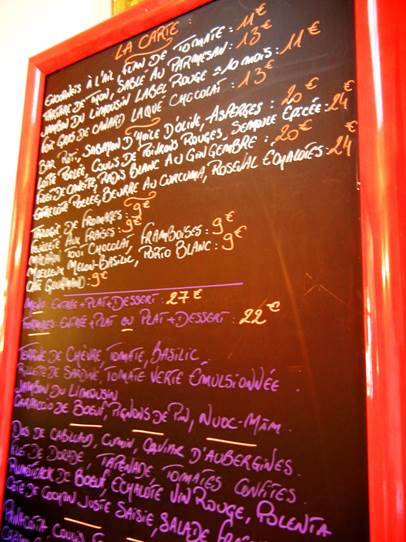 LA CARTE :
GIVORDAIS À L'AIL, FLAN DE TOMATE : 11€
TARTARE DE THON, SABLÉ AU PARMESAN : 13€
JAMBON DU LIMOUSIN LABEL ROUGE 10 MOIS : 11€
FOIE GRAS DE CANARD LAQUÉ CHOCOLAT : 13€
BAR RÔTI, SABAYON D'HUILE D'OLIVE, ASPERGES : 20€
LOTTE POÊLÉE, COULIS DE POIVRONS ROUGES, SEMOULE ÉPICÉE : 24€
FILET DE CANETTE, RADIS BLANC AU GINGEMBRE : 20€
ENTRECÔTE POÊLÉE, BEURRE AU CURCUMA, ROSEVAL ECHALOTES : 24€
DE FROMAGES : 9€
FEUILLETÉ AUX FRAISES : 9€
TOUT CHOCOLAT, FRAMBOISES : 9€
MOELLEUX MELON-BASILIC, PORTO BLANC : 9€
CAFÉ GOURMAND : 9€
MENU : ENTRÉE+PLAT+DESSERT : 27€
FORMULES : ENTRÉE+PLAT OU PLAT+DESSERT : 22€
TERRINE DE CHÈVRE TOMATE, BASILIC.
RILLETTE DE SARDINE, TOMATE VERTE EMULSIONNÉE.
JAMBON DU LIMOUSIN
CARPACCIO DE BOEUF, PIGNONS DE PIN, NUOC-MÂM.
DOS DE CABILLAUD, CUMIN, CAVIAR D'AUBERGINES.
FILET DE DORADE, TAPENADE TOMATES CONFITES.
DE BOEUF ECHALOTE VIN ROUGE, POLENTA
CÔTE DE COCHON JUSTE SAISIE, SALADE
PANACOTTA, COULIS